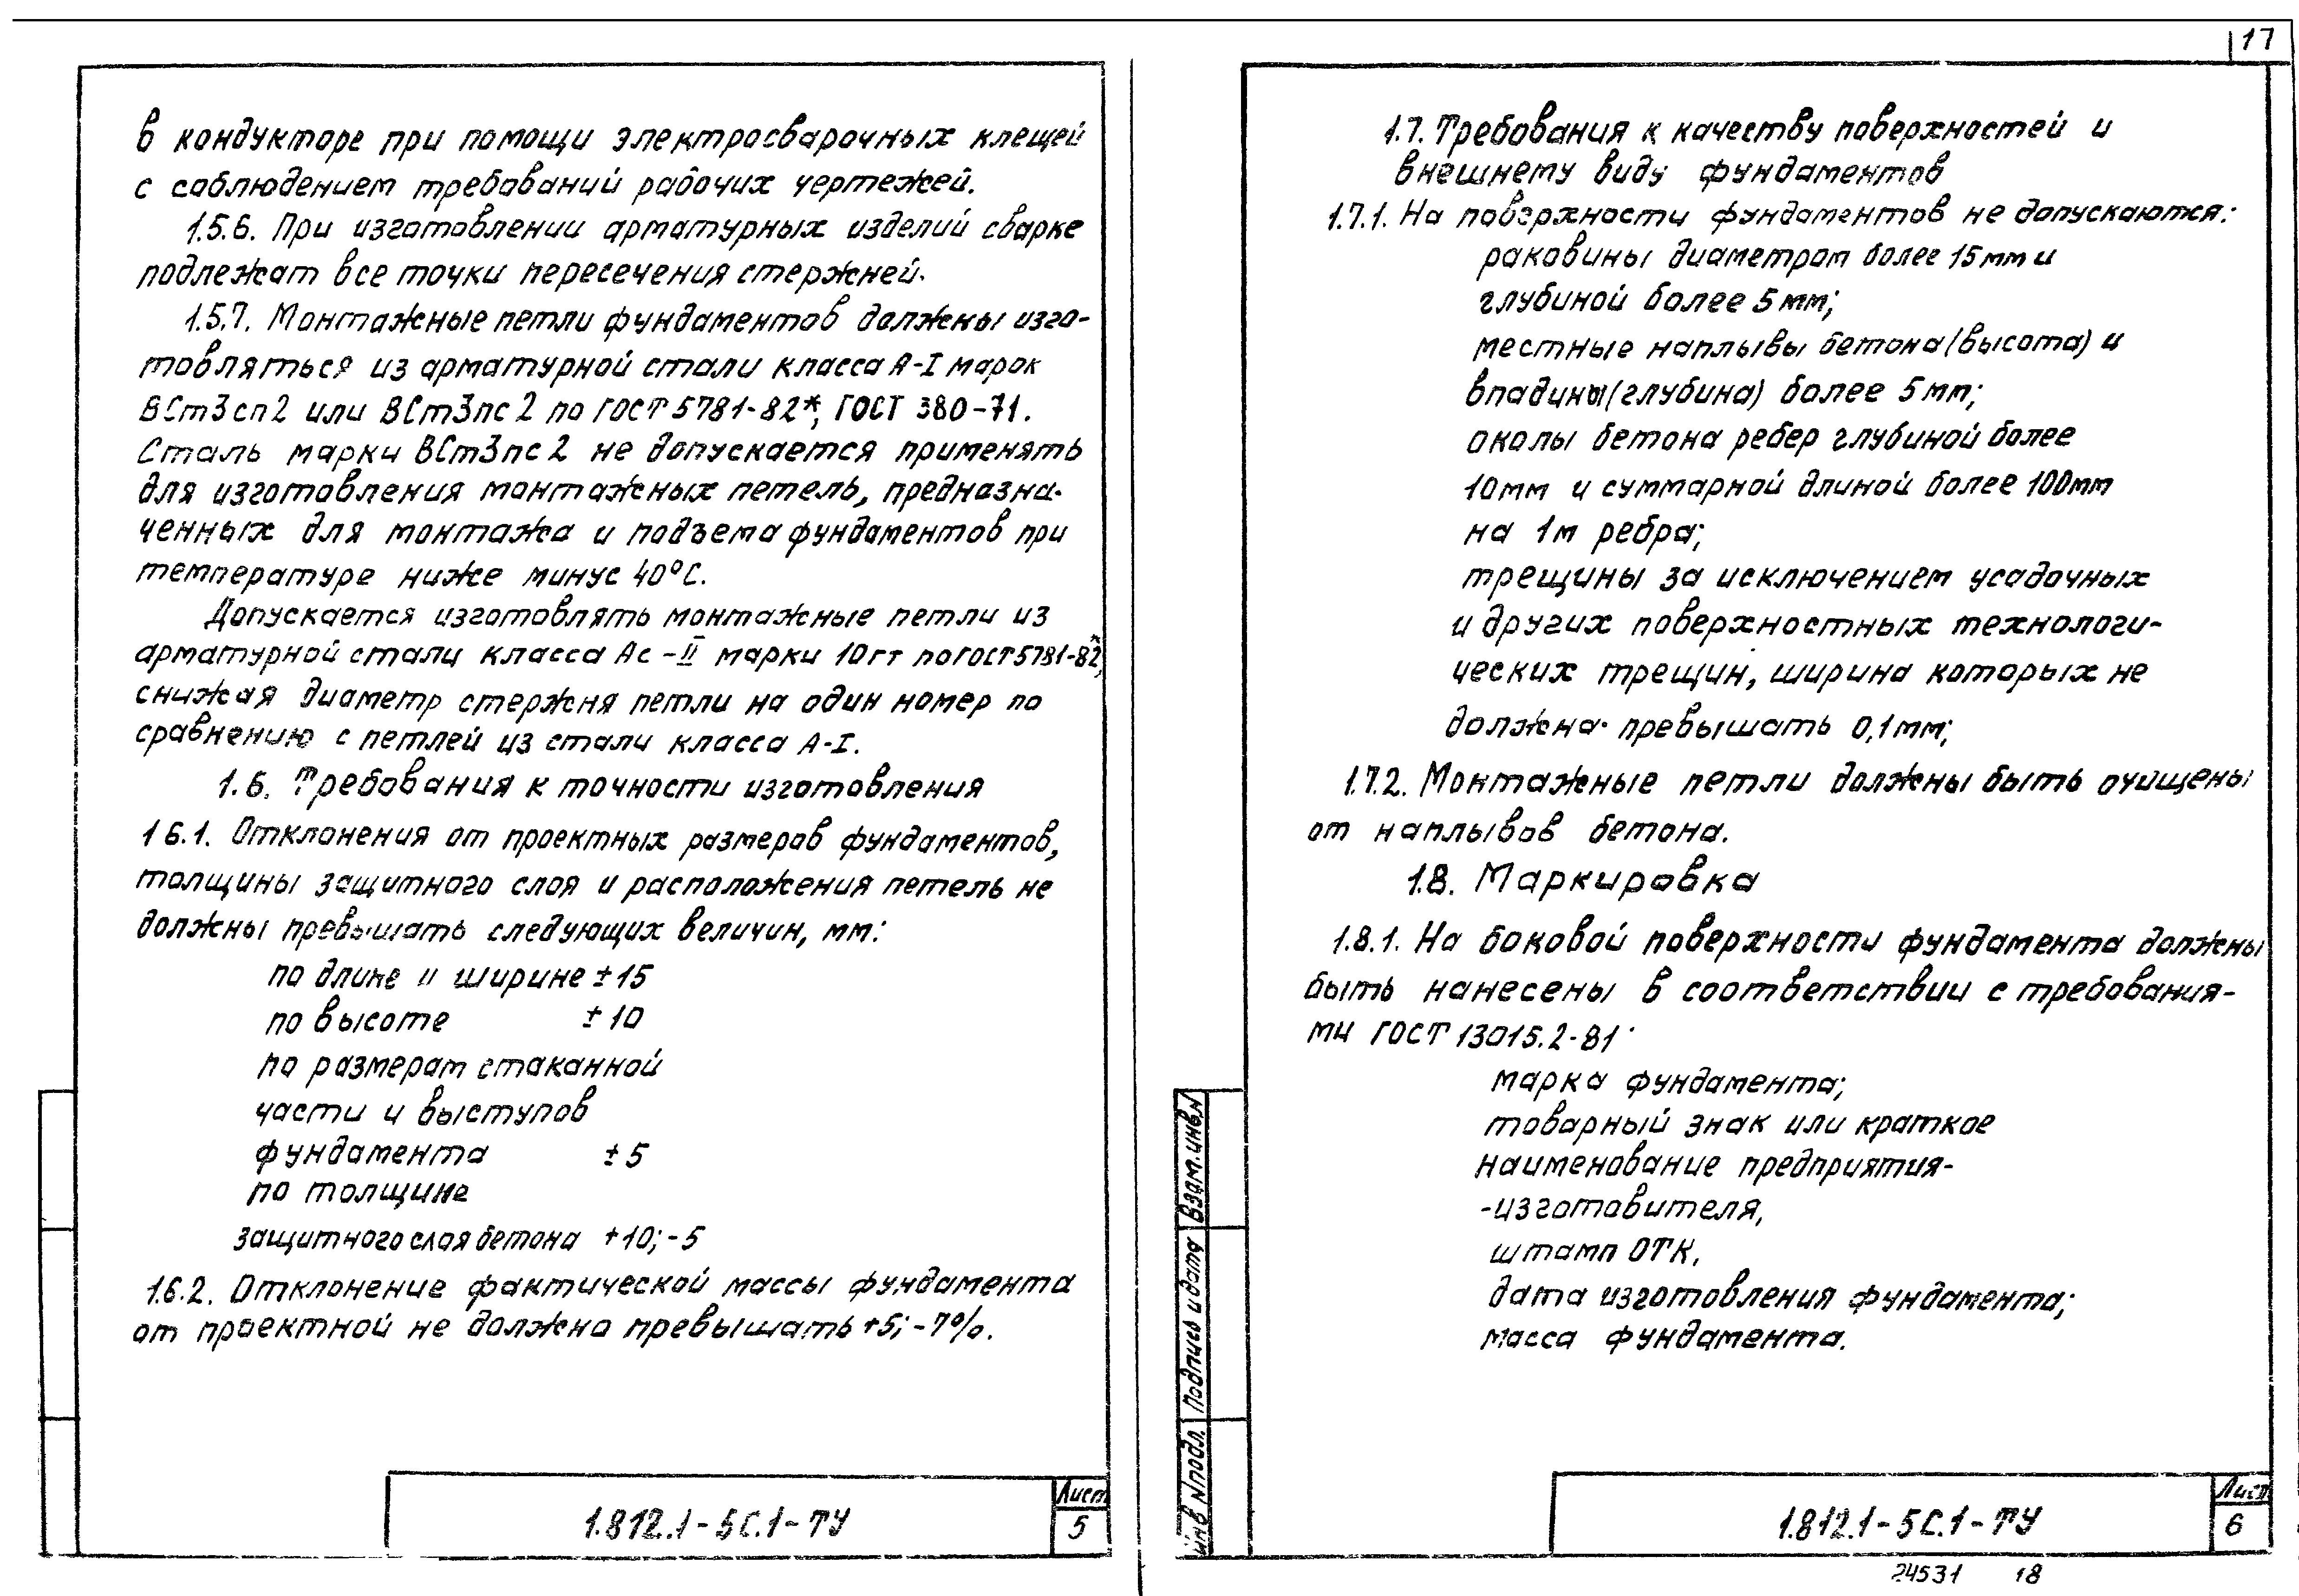 17
в кондукторе при помощи электросварочных клещей
с соблюдением требований рабочих чертежей.
1.5.6. При изготовлении арматурных изделий сварке
подлежат все точки пересечения стержней.
1.5.7. Монтажные петли фундаментов должны изго-
товляться из арматурной стали класса А-I марок
ВСт3сп2 или ВСт3пс2 по ГОСТ 5781-82*, ГОСТ 380-71.
Сталь марки ВСт3пс2 не допускается применять
для изготовления монтажных петель, предназна-
ченных для монтажа и подъема фундаментов при
температуре ниже минус 40°С.
Допускается изготовлять монтажные петли из
арматурной стали класса Ас-II марки 10гт по ГОСТ 5781-82*,
снижая диаметр стержня петли на один номер по
сравнению с петлей из стали класса А-I.
1.6. Требования к точности изготовления
1.6.1. Отклонения от проектных размеров фундаментов,
толщины защитного слоя и расположения петель не
должны превышать следующих величин, мм:
по длине и ширине ±15
по высоте ±10
по размерам стаканной
части и выступов
фундамента ±5
по толщине
защитного слоя бетона +10; -5
1.6.2. Отклонение фактической массы фундамента
от проектной не должно превышать +5; -7%.
1.812.1-5С.1-ТУ
Лист
5
1.7. Требования к качеству поверхностей и
внешнему виду фундаментов
1.7.1. На поверхности фундаментов не допускаются:
раковины диаметром более 15мм и
глубиной более 5мм;
местные наплывы бетона (высота) и
впадины (глубина) более 5мм;
околы бетона ребер глубиной более
10мм и суммарной длиной более 100мм
на 1м ребра;
трещины за исключением усадочных
и других поверхностных технологи-
ческих трещин, ширина которых не
должна превышать 0,1мм;
1.7.2. Монтажные петли должны быть очищены
от наплывов бетона.
1.8. Маркировка
1.8.1. На боковой поверхности фундамента должны
быть нанесены в соответствии с требования-
ми ГОСТ 13015.2-81:
марка фундамента;
товарный знак или краткое
наименование предприятия-
-изготовителя,
штамп ОТК,
дата изготовления фундамента;
масса фундамента.
Взам.инв.N
Подпись и дата
Инв N подл.
1.812.1-5С.1-ТУ
Лист
6
24531 18